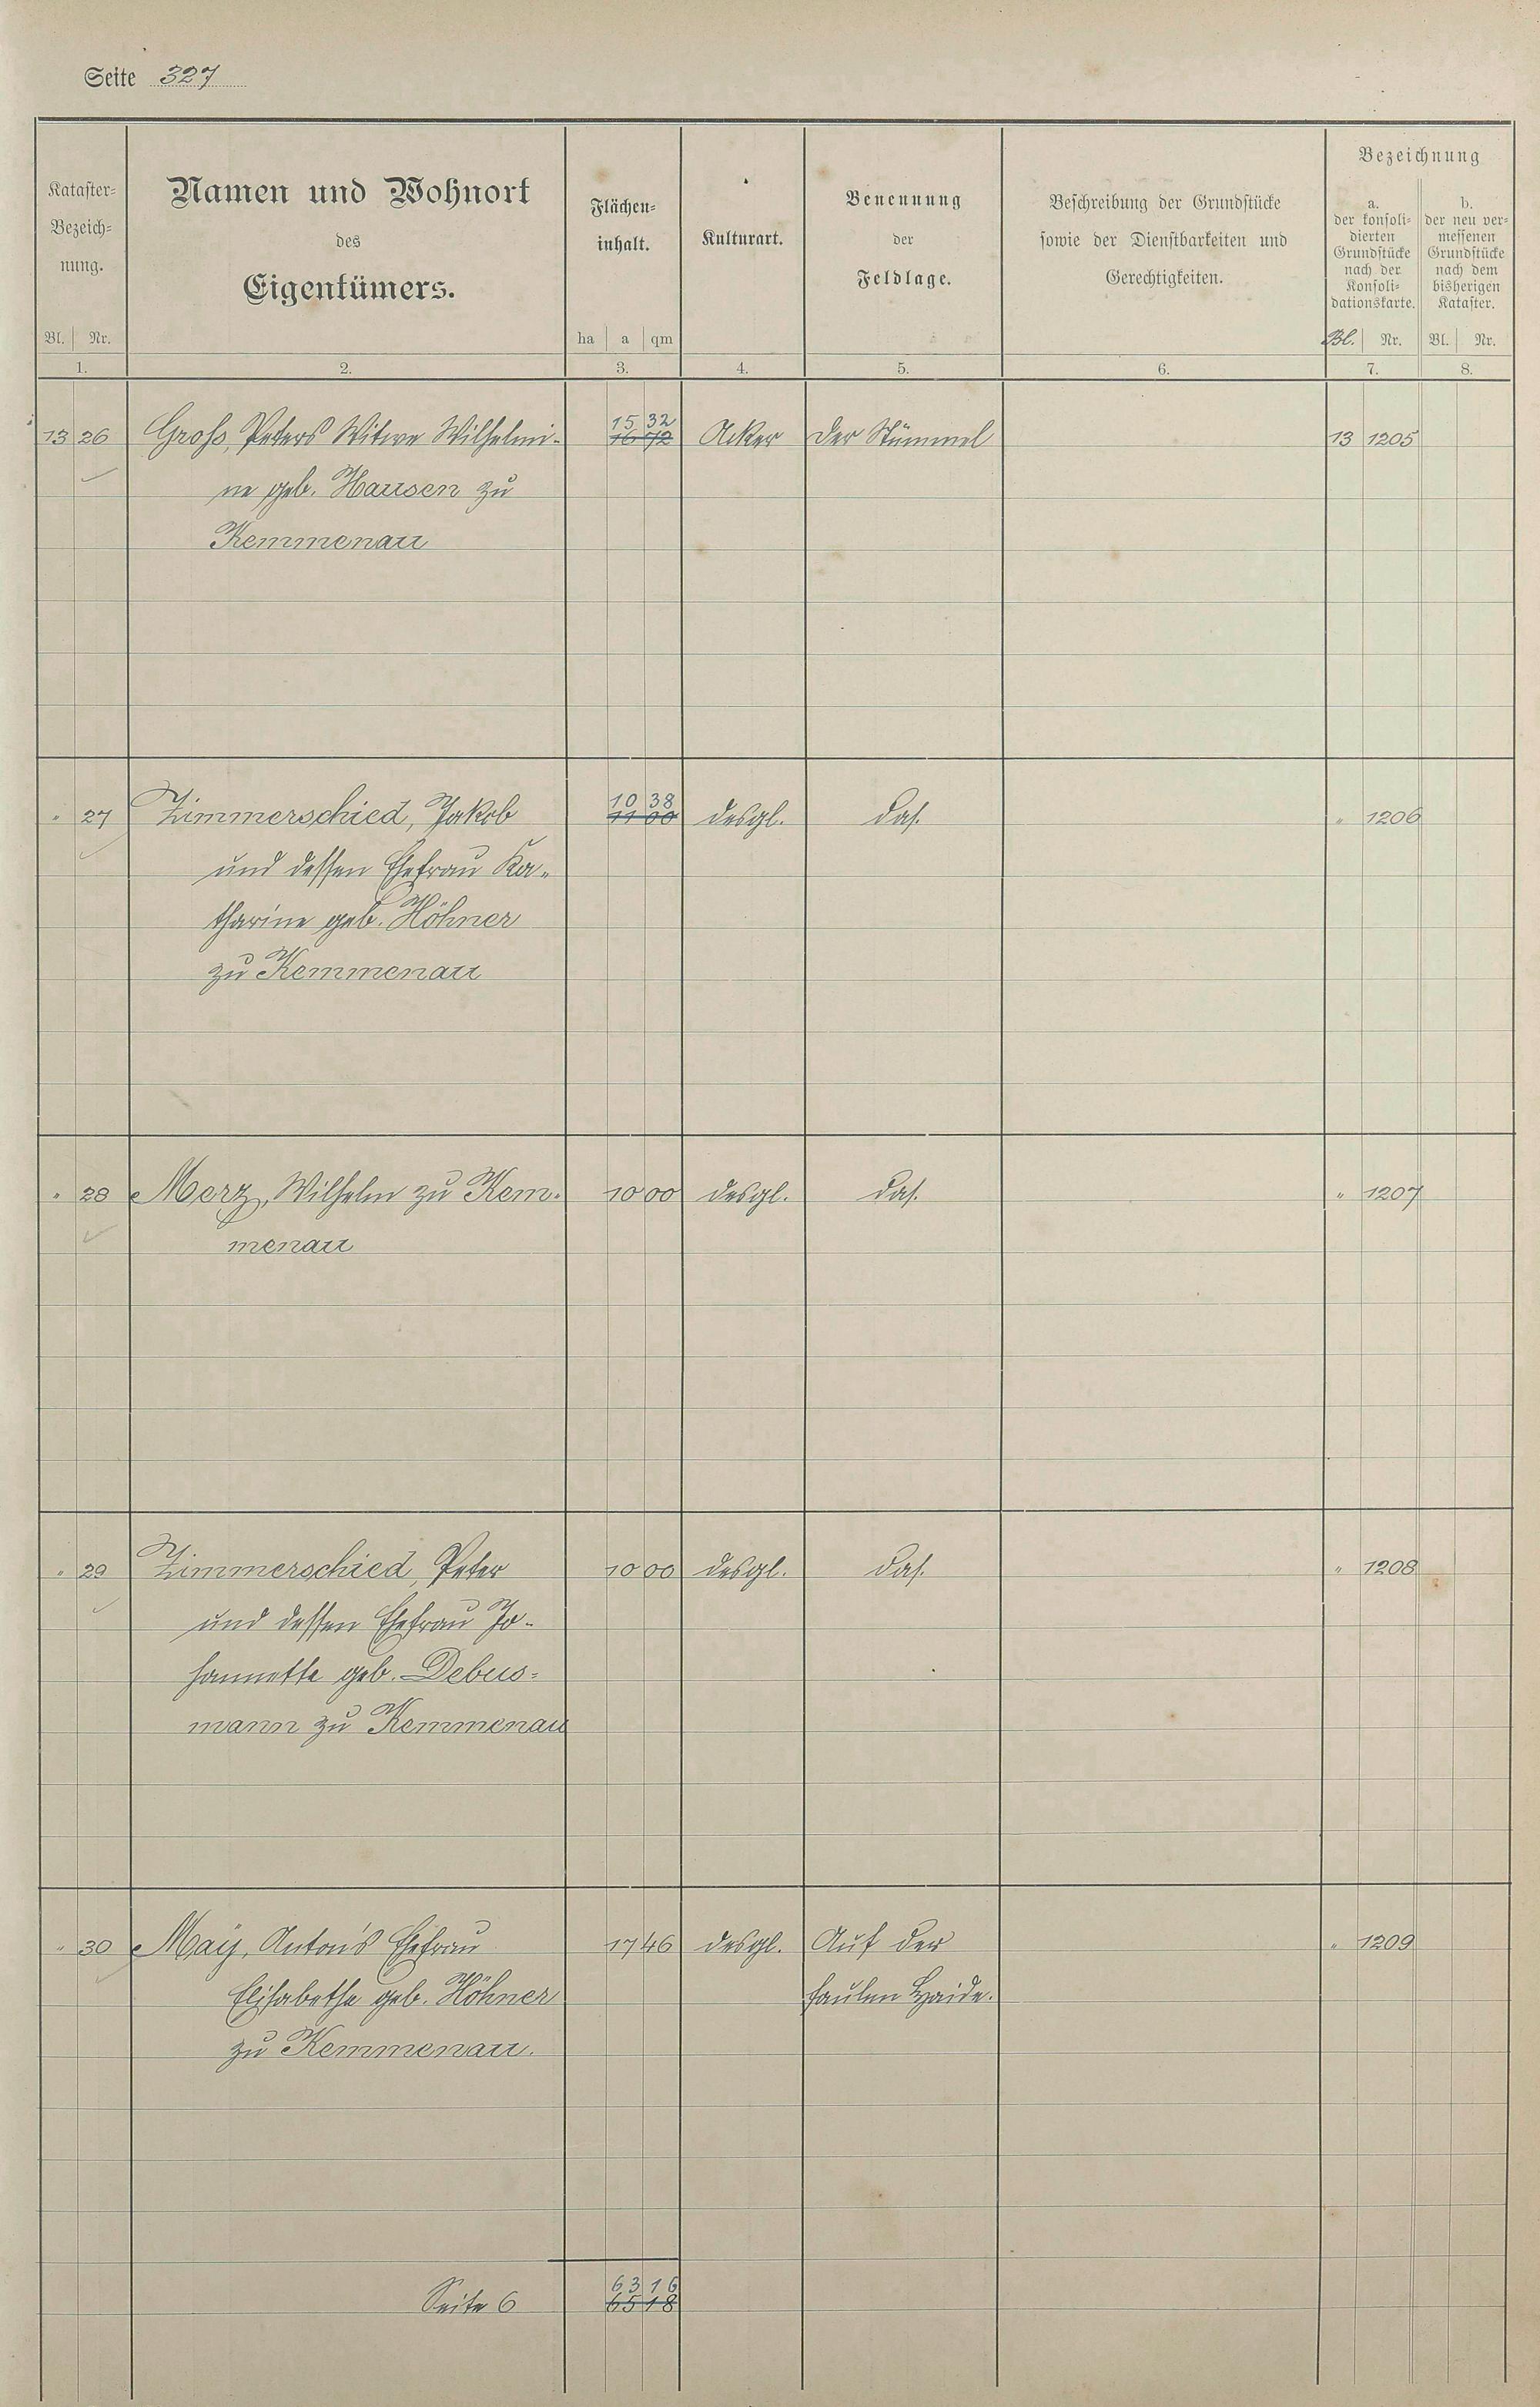 Seite 327
Kataster-Bezeich-nung. Namen und Wohnort des Eigentümers. Flächen-inhalt. Kulturart. Benennung der Feldlage. Beschreibung der Grundstücke sowie der Dienstbarkeiten und Gerechtigkeiten. Bezeichnung
a. der konsoli-dierten Grundstücke nach der Konsoli-dationskarte. b. der neu ver-messenen Grundstücke nach dem bisherigen Kataster.
Bl. Nr. ha a qm Bl. Nr. Bl. Nr.
1. 2. 3. 4. 5. 6. 7. 8.
15 32
13 26 Groß, Peters Witwe Wilhelmi- 16 72 Acker Der Stümmel 13 1205
ne geb. Hausen zu
Kemmenau
10 38
" 27 Zimmerschied, Jakob 11 00 desgl. das. " 1206
und dessen Ehefrau Ka-
tharine geb. Höhner
zu Kemmenau
" 28 Merz, Wilhelm zu Kem- 10 00 desgl. das. " 1207
menau
" 29 Zimmerschied, Peter 10 00 desgl. das. " 1208
und dessen Ehefrau Jo-
hannette geb. Debus-
mann zu Kemmenau
" 30 Maÿ, Anton's Ehefrau 17 46 desgl. Auf der " 1209
Elisabetha geb. Höhner faulen Haide.
zu Kemmenau.
63 16
Seite 6 65 18